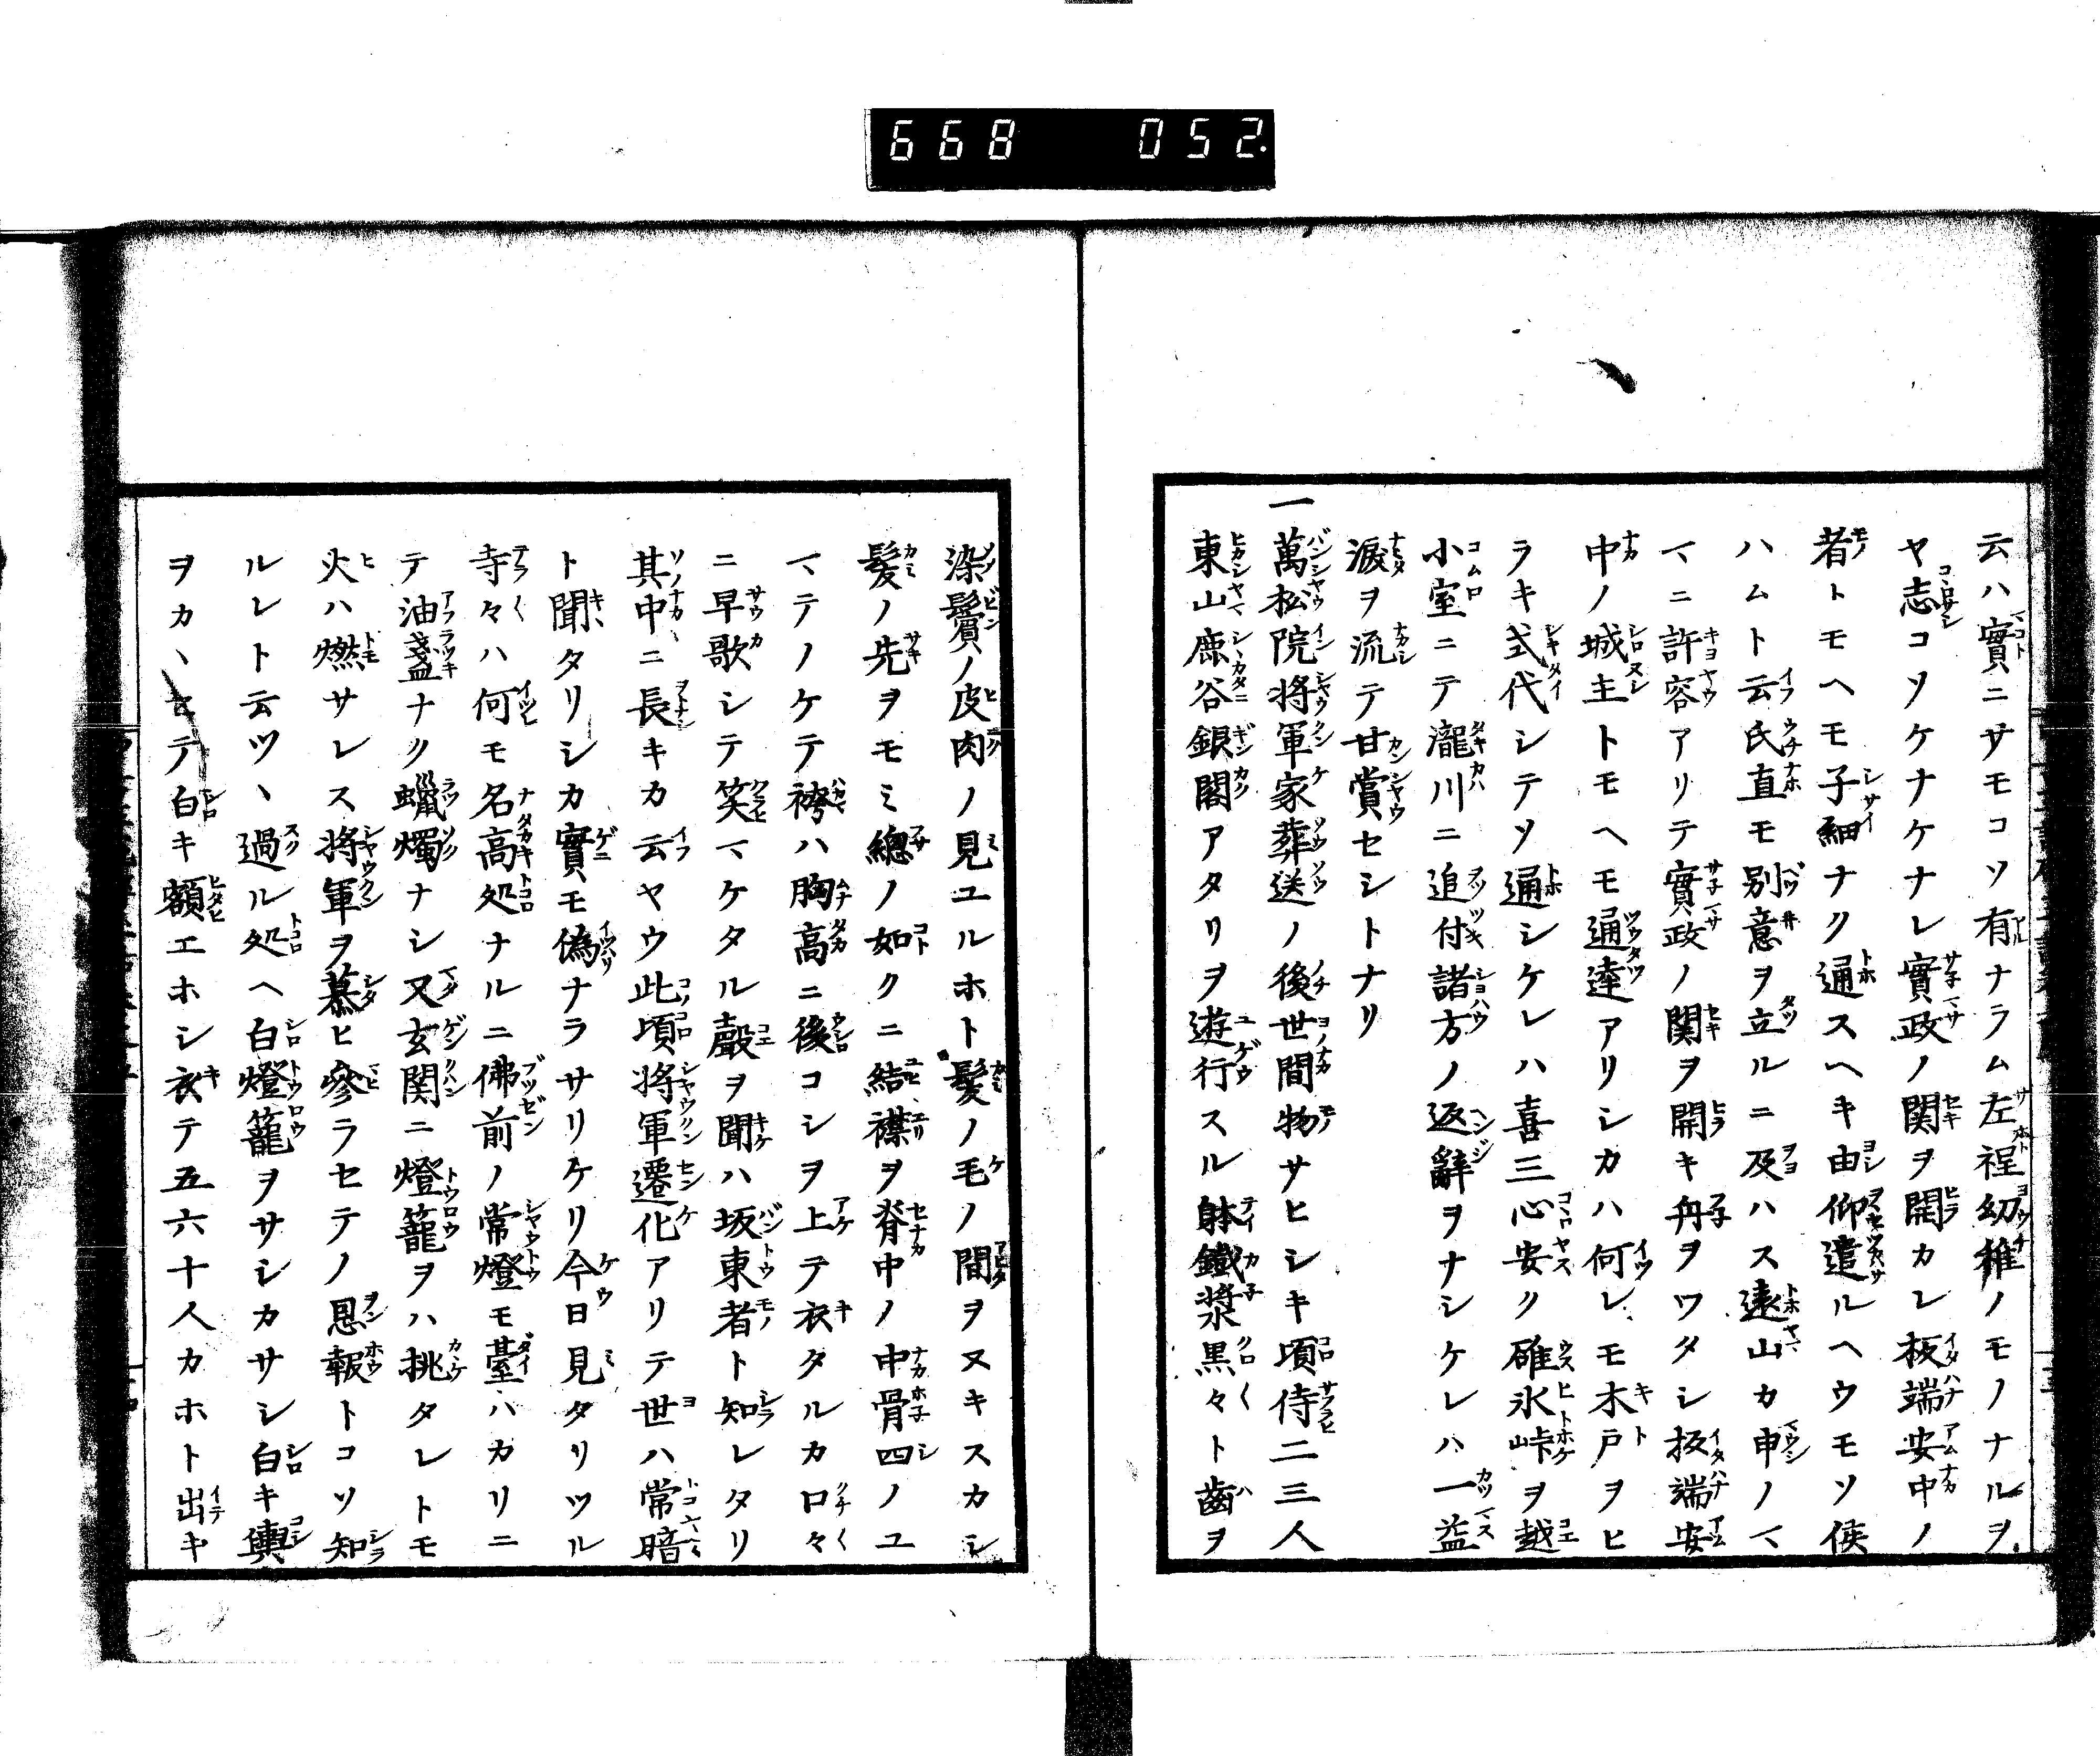 668 052.
云ハ實ニサモコソ有ナラム左程幼稚ノモノナルヲ
ヤ志コソケナケナレ實政ノ関ヲ開カレ板端安中ノ
者トモヘモ子細ナク通スヘキ由仰遣ルヘウモソ侯
ハムト云氏直モ別意ヲ立ルニ及ハス遠山カ申ノマ
マニ許容アリテ實政ノ関ヲ開キ舟ヲワタシ板端安
中ノ城主トモヘモ通達アリシカハ何レモ木戸ヲヒ
ラキ式代シテソ通シケレハ喜三心安ク碓氷峠ヲ越
小室ニテ瀧川ニ追付諸方ノ返辭ヲナシケレハ一益
淚ヲ流テ甘賞セシトナリ
一萬松院将軍家葬送ノ後世間物サヒシキ項侍二三人
東山鹿谷銀閣アタリヲ遊行スル躰鐵漿黒々ト齒ヲ
染鬢ノ皮肉ノ見ユルホト髪ノ毛ノ間ヲヌキスカシ
髪ノ先ヲモミ總ノ如クニ結襟ヲ脊中ノ中骨四ノユ
マテノケテ袴ハ胸高ニ後コシヲ上テ衣タルカロ々
ニ早歌シテ笑マケタル聲ヲ聞ハ坂東者ト知レタリ
其中ニ長キカ云ヤウ此頃将軍遷化アリテ世ハ常暗
ト聞タリシカ實モ偽ナラサリケリ今日見タリツル
寺々ハ何モ名高処ナルニ佛前ノ常燈モ臺ハカリニ
テ油盞ナク蠟燭ナシ又玄関ニ燈籠ヲハ挑タレトモ
火ハ燃サレス将軍ヲ慕ヒ參ラセテノ恩報トコソ知
ルレト云ツヽ過ル処ヘ白燈籠ヲサシカサシ白キ輿
ヲカヽセテ白キ額エホシ衣テ五六十人カホト出キ